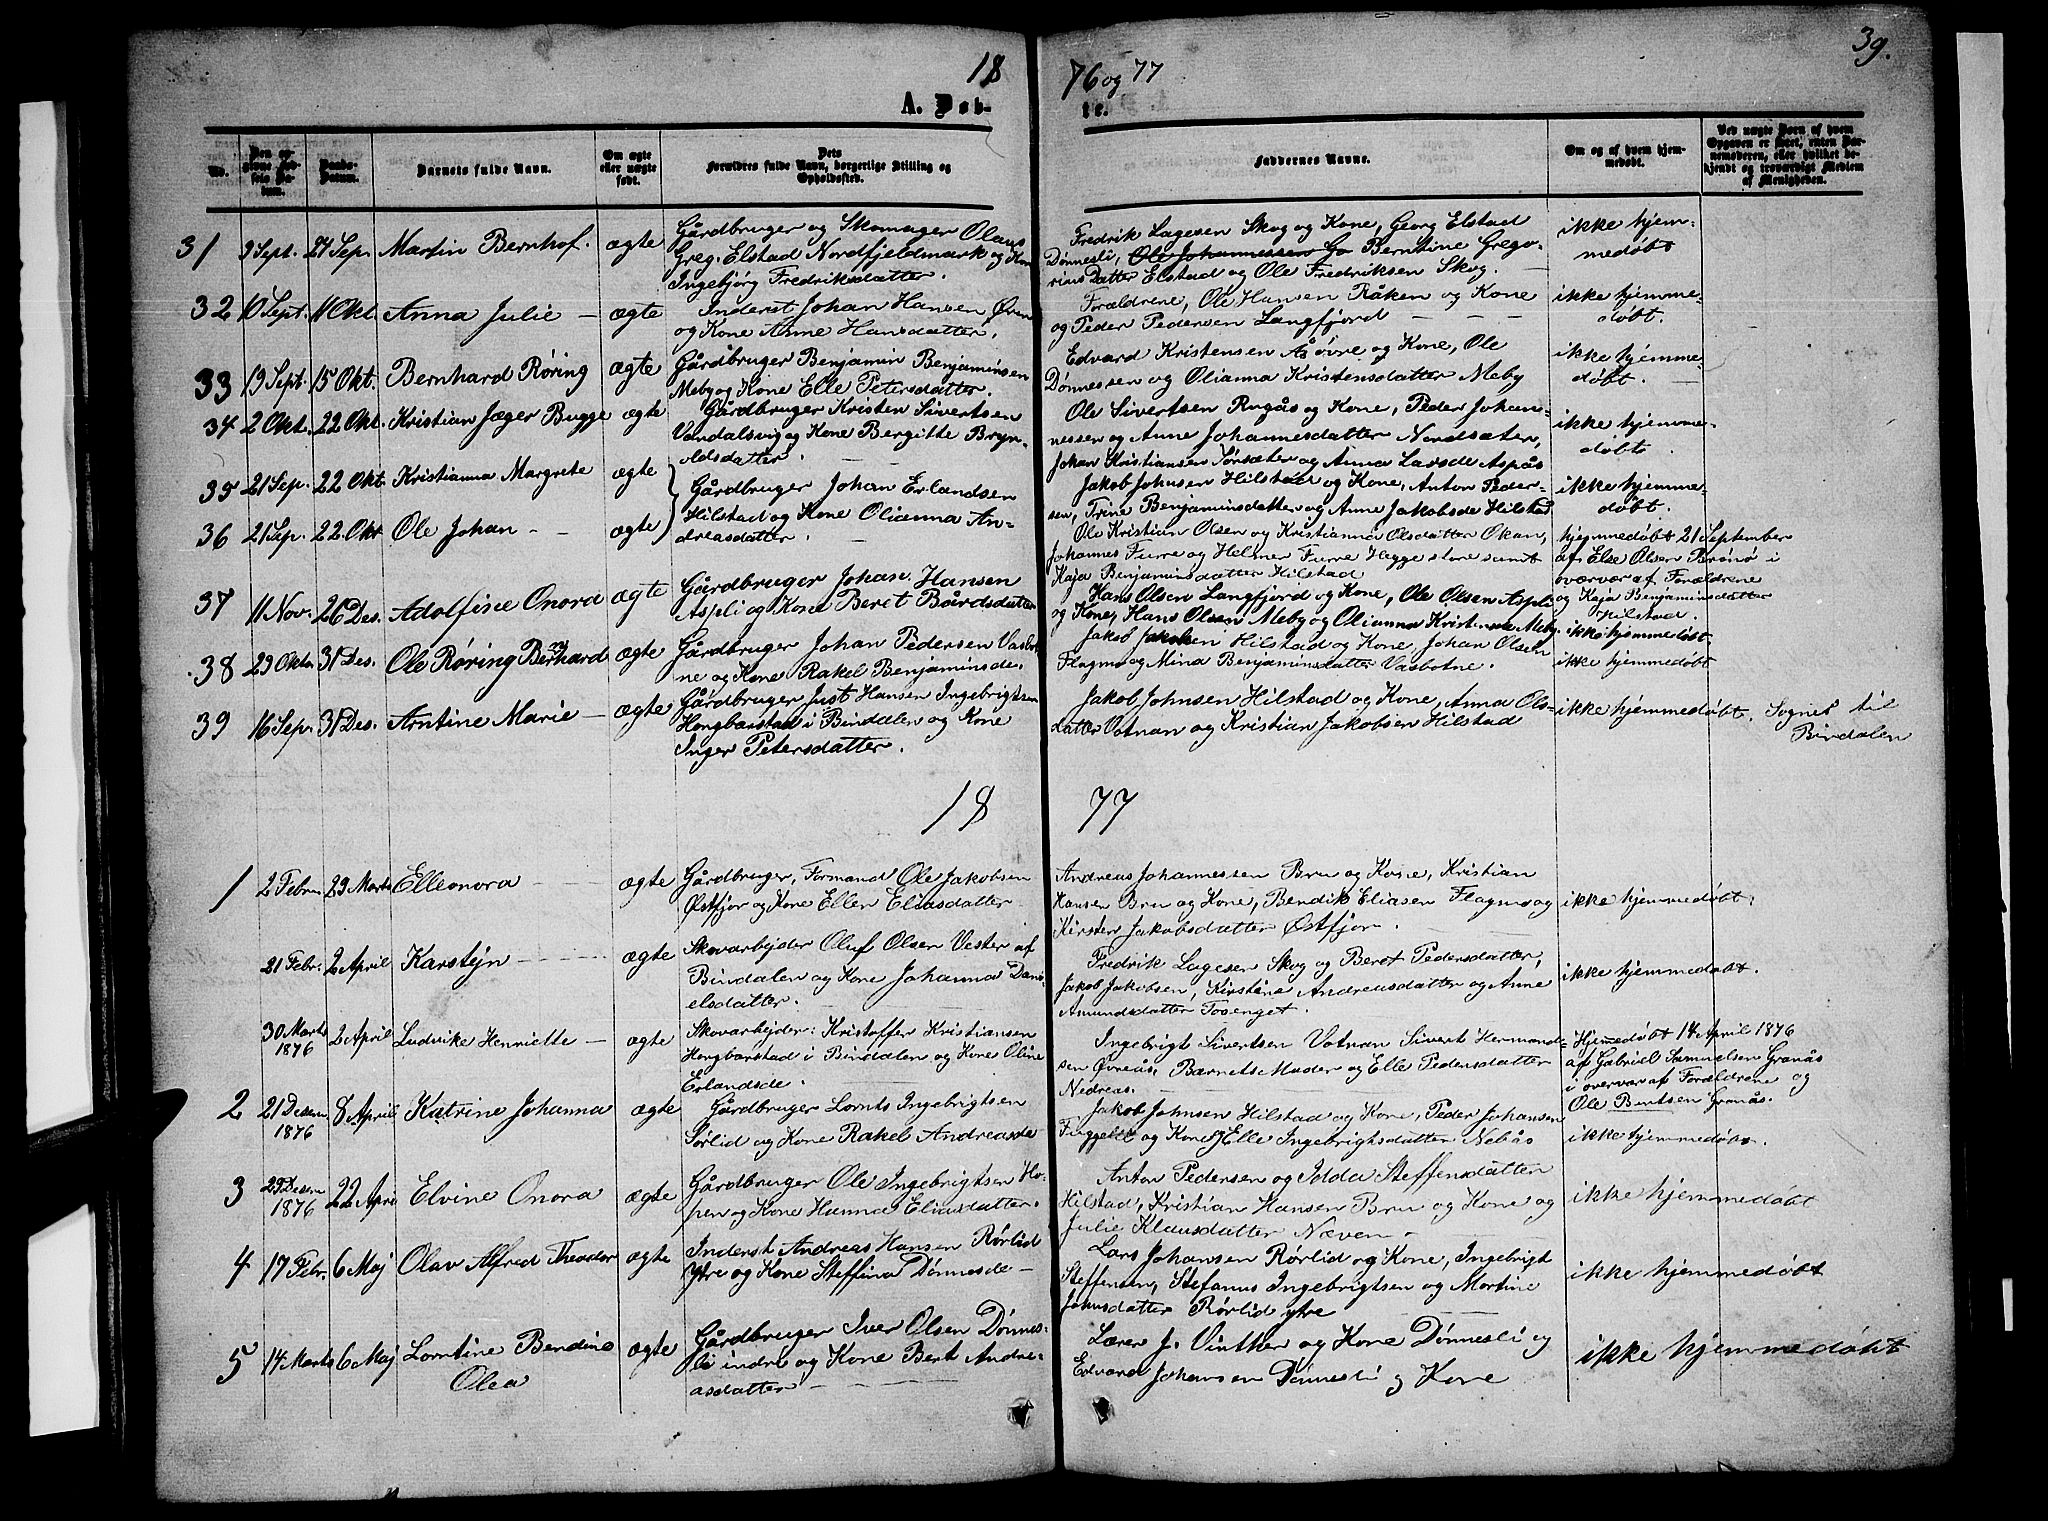 39.
18 76 og 77
A. Døb- te.
No.
Den opgivne Fødsels Datum.
Daabs-Datum.
Barnets fulde Navn.
Om ægte eller uægte født.
Dets Forældres fulde Navn, borgerlige Stilling og Opholdssted.
Faddernes Navne.
Om og af hvem hjemmedøbt.
Ved uægte Børn af hvem Opgaven er skeet, enten Barnemoderen, eller hvilket bekjendt og troværdigt Medlem af Menigheden.
31 9 Sept. 24 Sep. Martin Bernhof. ægte
Gårdbruger og Skomager Olaus
Greg. Elstad Nordfjeldmark og Kone
Ingebjørg Fredriksdatter.
Fredrik Lagesen Skog og Kone, Georg Elstad
Dønnesli, Ole Johannessen Berntine Grego-
rius Datter Elstad og Ole Fredriksen Skog. -
ikke hjem-
medøbt
32 10 Sept. 11 Okt. Anna Julie - ægte
Inderst Johan Hansen Øvre
og Kone Anne Hansdatter.
Forældrene, Ole Hansen Råken og Kone
og Peder Pedersen Langfjord - - -
ikke hjemme-
døbt.
33 19 Sept. 15 Okt. Bernhard Røring ægte
Gårdbruger Benjamin Benjaminsen
Meby og Kone Elle Petersdatter.
Edvard Kristensen Åsøvre og Kone, Ole
Dønnessen og Olianna Kristensdatter Meby
ikke hjemme
døbt. -
34 2 Okt. 22 Okt. Kristian Jæger Bugge ægte
Gårdbruger Kristen Sivertsen
Vandalsvig og Kone Bergitte Bryn-
oldsdatter. -
Ole Sivertsen Rugås og Kone, Peder Johan-
nessen og Anne Johannesdatter Nordsæter,
Johan Kristiansen Sørsæter og Anna Larsde Aspås
ikke hjemme-
døbt.
35 21 Sep. 22 Okt. Kristianna Margrete ægte
36 21 Sep. 22 Okt Ole Johan - - ægte
Gårdbruger Johan Erlandsen
Hilstad og Kone Olianna An-
dreasdatter. -
Jakob Johnsen Hilstad og Kone, Anton Peder-
sen, Trine Benjaminsdatter og Anne Jakobsde Hilstad
ikke hjemme-
døbt.
Ole Kristian Olsen og Kristianna Olsdatter Okan,
Johannes Furre og Helmer Furre Hegge store samt
Kaja Benjaminsdatter Hilstad
hjemmedøbt 21 September
af Else Olsen Brønø i
overvær af Forældrene
og Kaja Benjaminsdatter
Hilstad.
37 11 Nov. 26 Des. Adolfine Onora ægte
Gårdbruger Johan Hansen
Aspli og Kone Beret Bårdsdatter
Hans Olsen Langfjord og Kone, Ole Olsen Aspli
og Kone, Hans Olsen Meby og Olianna Meby.
ikke hjemmedøbt
38 29 Okt. 31 Des. Ole Røring Bernhard ægte
Gårdbruger Johan Pedersen Vasbot-
ne og Kone Rakel Benjaminsde.
Jakob Hilstad og Kone, Johan Olsen
Flagmo og Mina Benjaminsdatter Vasbotne.
ikke hjemmedøbt
39 16 Sep. 31 Des. Arntine Marie - ægte
Gårdbruger Just Hansen Ingebrigtsen
Hongbarstad i Bindalen og Kone
Inger Petersdatter.
Jakob Johnsen Hilstad og Kone, Anna Ols-
datter Votnan og Kristian Jakobsen Hilstad
ikke hjemmedøbt.
Sognet til
Bindalen
18 77
1 2 Febr. 29 Marts Elleonora - - - ægte
Gårdbruger, Formand Ole Jakobsen
Østfjor og Kone Ellen Eliasdatter
Andreas Johannessen Bru og Kone, Kristian
Hansen Bru og Kone, Bendik Eliasen Flagmo og
Kirsten Jakobsdatter Østfjor.
ikke hjemmedøbt.
21 Febr. 2 April Karstejn - - - ægte
Skovarbejder Oluf Olsen Vester af
Bindalen og Kone Johanna Dani-
elsdatter. -
Fredrik Lagesen Skog og Beret Pedersdatter,
Jakob Jakobsen, Kirstine Andreasdatter og Anne
Amundsdatter Tosenget.
ikke hjemmedøbt.
30 Marts 1876 2 April Ludvike Henriette - ægte
Skovarbejder: Kristoffer Kristiansen
Hongbarstad i Bindalen og Kone Oline
Erlandsde.
Ingebrigt Sivertsen Votnan Sivert Hermand-
sen Øvreås, Barnets Moder og Elle Pedersdatter
Nedreås.
Hjemmedøbt 14 April 1876
af Gabriel Samuelsen Granås
i overvær af Forældrene og
Ole Bentsen Granås.
2 21 Desem 1876 8 April Katrine Johanna ægte
Gårdbruger Lornts Ingebrigtsen
Sørlid og Kone Rakel Andreasde
Jakob Johnsen Hilstad og Kone, Peder Johansen
og Kone, Elle Ingebrigtsdatter Nebås
ikke hjemmedøbt.
3 29 Desem 1876 22 Apri Elvine Onora ægte
Gårdbruger Ole Ingebrigtsen Ho-
pen og Kone Hanna Eliasdatter.
Anton Pedersen og Idda Steffensdatter
Hilstad, Kristian Hansen Bru og Kone og
Julie Klausdatter Næven -
ikke hjemmedøbt
4 17 Febr. 6 Maj Olav Alfred Theodor ægte
Inderst Andreas Hansen Rørlid
Ytre og Kone Steffina Dønnesde -
Lars Johansen Rørlid og Kone, Ingebrigt
Steffensen, Stefanus Ingebrigtsen og Martine
Jonasdatter Rørlid ytre
ikke hjemmedøbt
5 14 Marts 6 Maj Lorntine Bendine ægte
Olea
Gårdbruger Iver Olsen Dønnes-
li indre og Kone Bert Andre-
asdatter - - -
Lærer J. Vinther og Kone Dønnesli og
Edvard Johansen Dønnesli og Kone
ikke hjemmedøbt